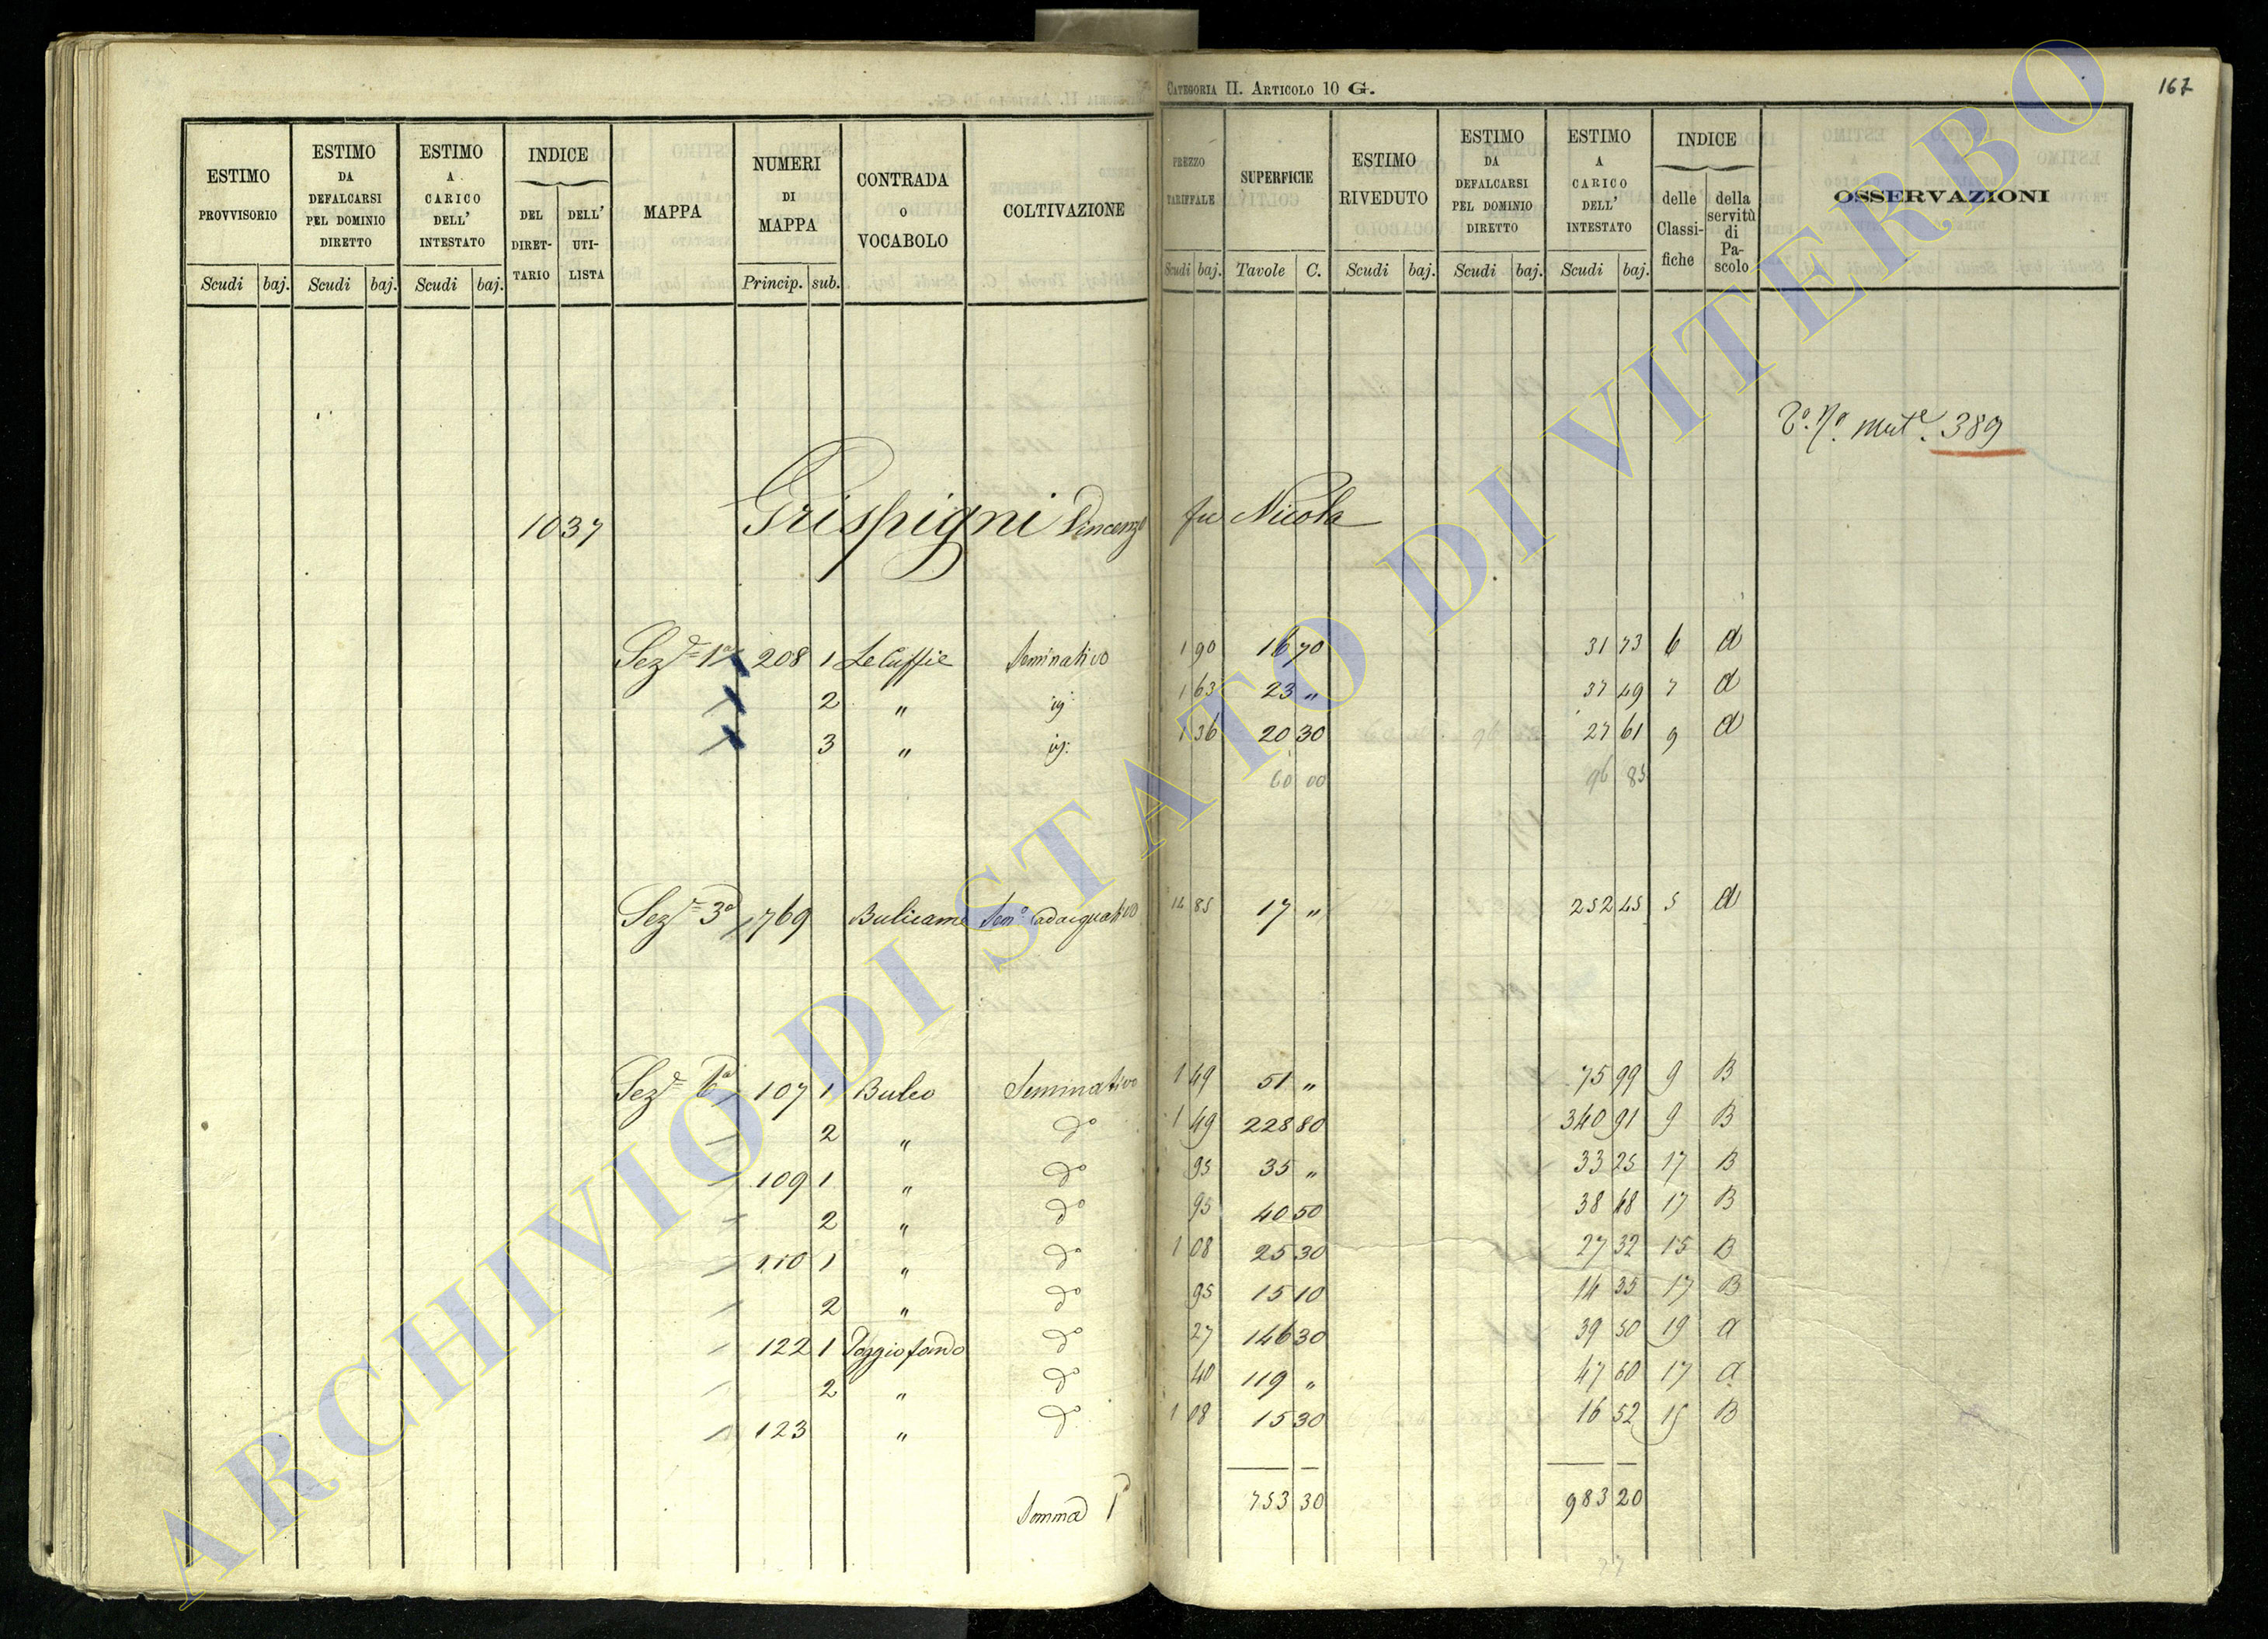 CATEGORIA II. ARTICOLO 10 G.
167
ESTIMO PROVVISORIO
ESTIMO DA DEFALCARSI PEL DOMINIO DIRETTO
ESTIMO A CARICO DELL' INTESTATO
INDICE
DEL DIRET-TARIO
DELL' UTI-LISTA
MAPPA
NUMERI DI MAPPA
CONTRADA O VOCABOLO
COLTIVAZIONE
PREZZO TARIFFALE
SUPERFICIE
ESTIMO RIVEDUTO
ESTIMO DA DEFALCARSI PEL DOMINIO DIRETTO
ESTIMO A CARICO DELL' INTESTATO
INDICE
delle Classi-fiche
della servitù di Pa-scolo
OSSERVAZIONI
Scudi baj. Scudi baj. Scudi baj. Princip. sub. Scudi baj. Tavole C. Scudi baj. Scudi baj. Scudi baj.
389
1037 Grispigni Vincenzo fu Nicola
Sez.e 1a 208 1 Le Cuffie Seminativo 1 90 16 70 31 73 6 a
2 " id 1 63 23 " 37 49 7 a
3 " id. 1 36 20 30 27 61 9 a
60 00 96 83
Sez.e 3a 769 Bulicame Sem.o adacquativo 14 85 17 " 252 45 5 a
Sez.e 6a 107 1 Buleo Seminativo 1 49 51 " 75 99 9 B
2 " do 1 49 228 80 340 91 9 B
109 1 " do 95 35 " 33 25 17 B
2 " do 95 40 50 38 48 17 B
110 1 " do 1 08 25 30 27 32 15 B
2 " do 95 15 10 14 35 17 B
122 1 Poggiofondo do 27 146 30 39 50 19 a
2 " do 40 119 " 47 60 17 a
123 " do 1 08 15 30 16 52 15 B
Somma 753 30 983 20
ARCHIVIO DI STATO DI VITERBO